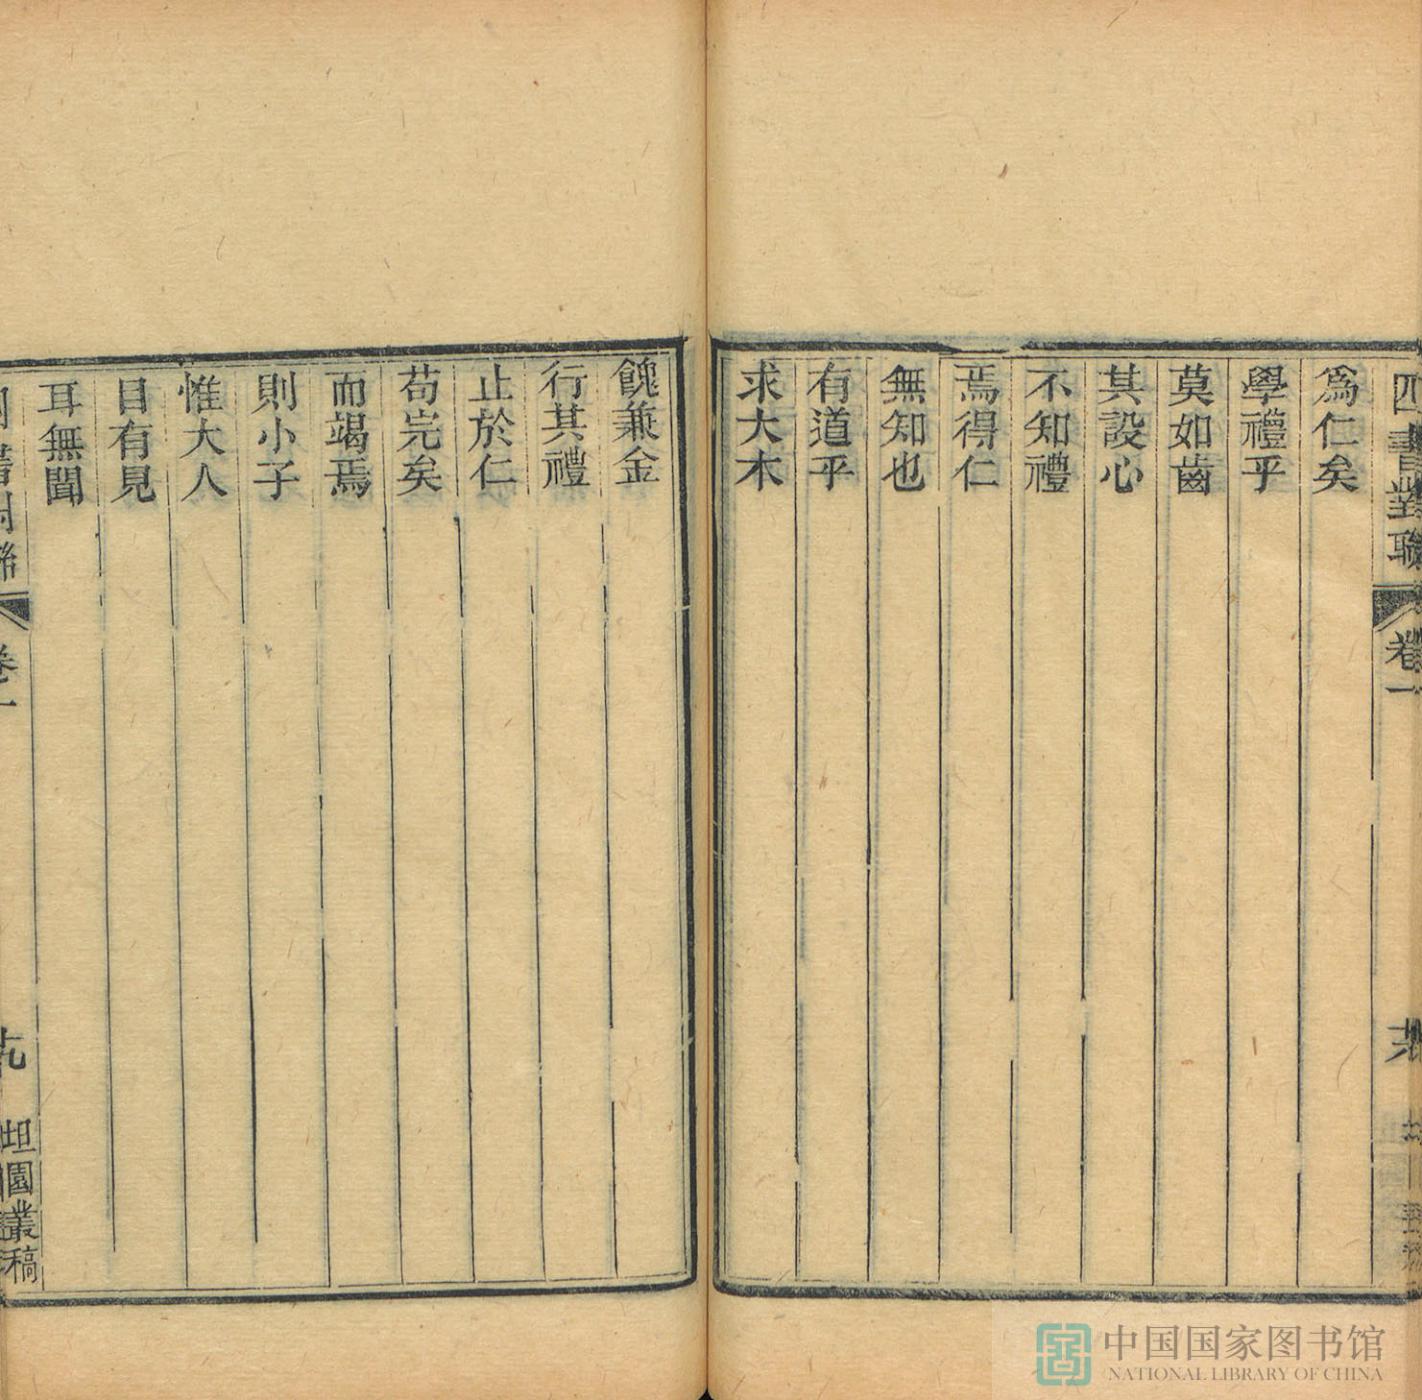 四書對聯 卷一
爲仁矣
學禮乎
莫如齒
其設心
不知禮
焉得仁
無知也
有道乎
求大木
餽兼金
行其禮
止於仁
苟完矣
而竭焉
則小子
惟大人
目有見
耳無聞
四書對聯 卷一 坦園叢稿
中国国家图书馆
NATIONAL LIBRARY OF CHINA